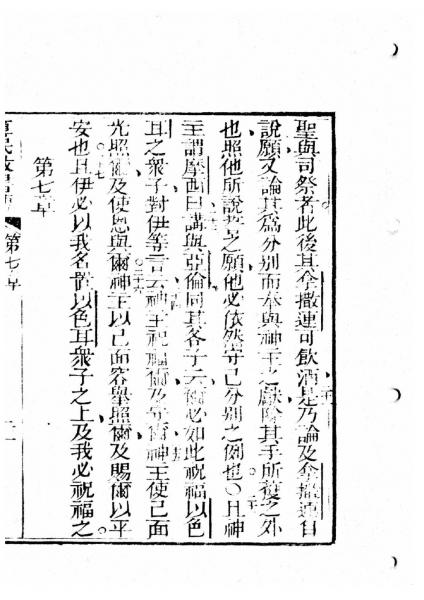 聖與司祭者此後其拿撒連可飲酒是乃論及拿撒連自
說願又論其為分別而奉與神主之獻除其手所獲之外
也照他所說誓之願他必依然守己分別之例也〇且神
主謂摩西曰講與亞倫同其各子云爾必如此祝福以色
耳之眾子對伊等言云神主祝福爾及守爾神主使己面
光照爾及使恩與爾神主以己面容舉照爾及賜爾以平
安也且伊必以我名置以色耳眾子之上及我必祝福之
第七章
第七章